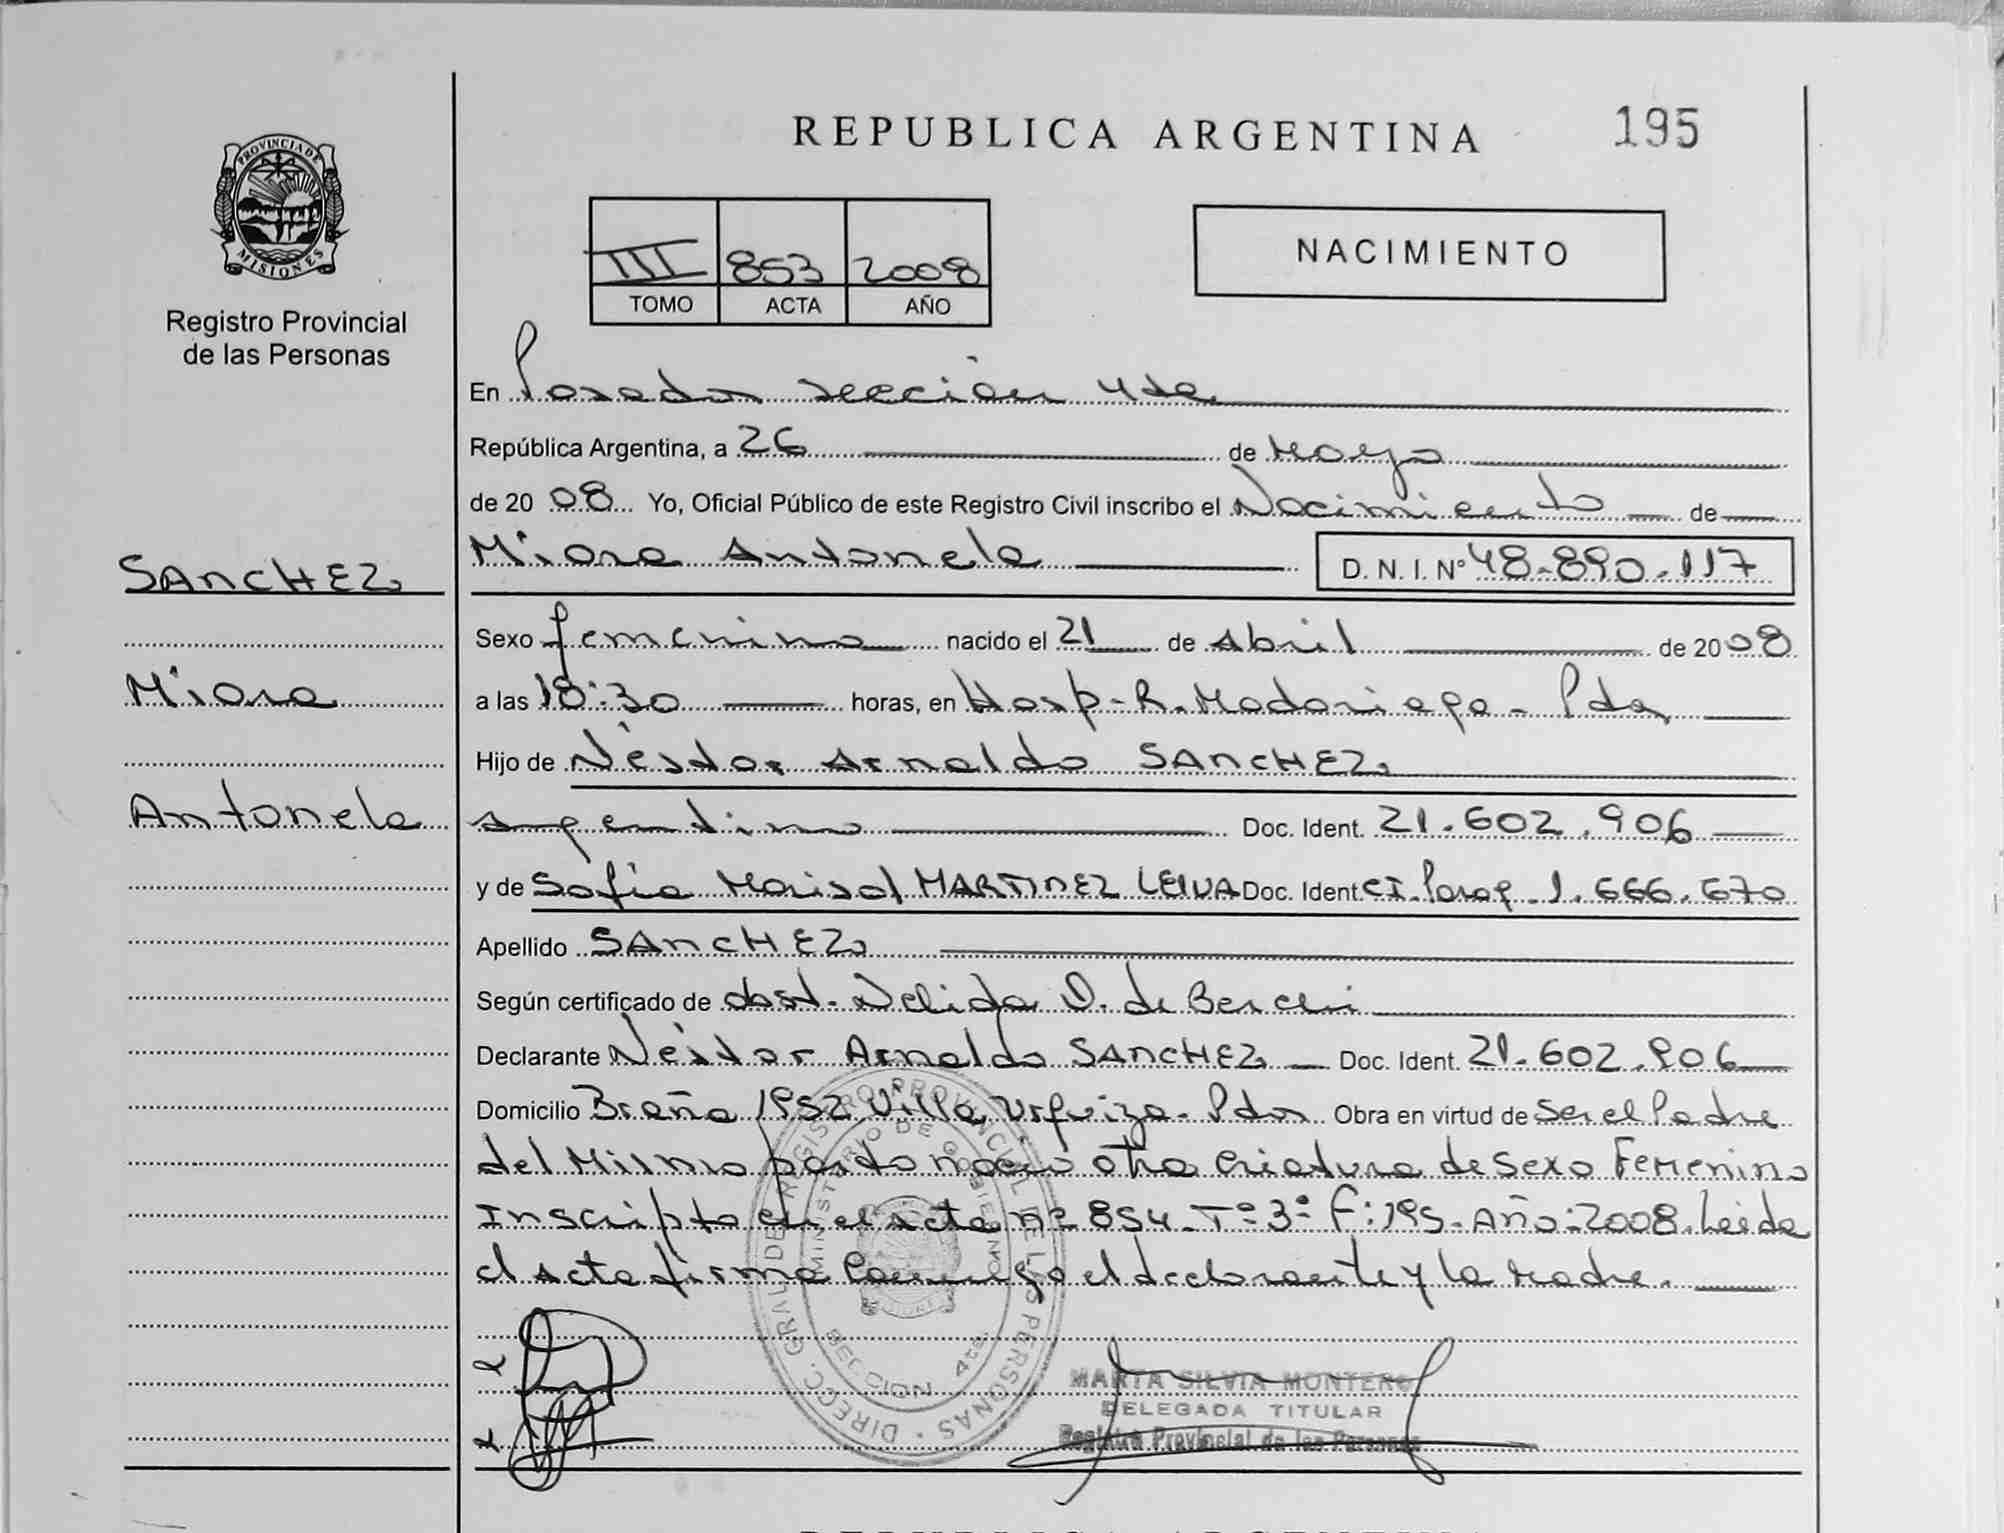 REPUBLICA ARGENTINA
195
PROVINCIA DE
MISIONES
Registro Provincial
de las Personas
III 853 2008
TOMO ACTA AÑO
NACIMIENTO
En Posadas sección 4ta
República Argentina, a 26 de Mayo
de 2008 Yo, Oficial Público de este Registro Civil inscribo el Nacimiento de
Miora Antonela D. N. I. N° 48.890.117
SANCHEZ
Miora
Antonela
Sexo femenino nacido el 21 de Abril de 2008
a las 18:30 horas, en Hosp. R. Madariaga - Pdas
Hijo de Néstor Arnaldo SANCHEZ
argentino Doc. Ident. 21.602.906
y de Sofía Marisol MARTINEZ LEIVA Doc. Ident. CI. Parag. 1.666.670
Apellido SANCHEZ
Según certificado de obst. Nelida D. de
Declarante Néstor Arnaldo SANCHEZ Doc. Ident. 21.602.906
Domicilio Braña 1952 Villa Urquiza - Pdas Obra en virtud de Ser el Padre
del Mismo parto nació otra criatura de Sexo Femenino
Inscripto en el acta Nº 854 - Tº 3º F: 195 - Año: 2008. Leida
el acta firma conmigo el declarante y la Madre.
DIRECC. GRAL. DE REGISTRO PROVINCIAL DE LAS PERSONAS
MINISTERIO DE GOBIERNO
SECCION 4ta
MARTA SILVIA MONTERO
DELEGADA TITULAR
Registro Provincial de las Personas
REPUBLICA ARGENTINA